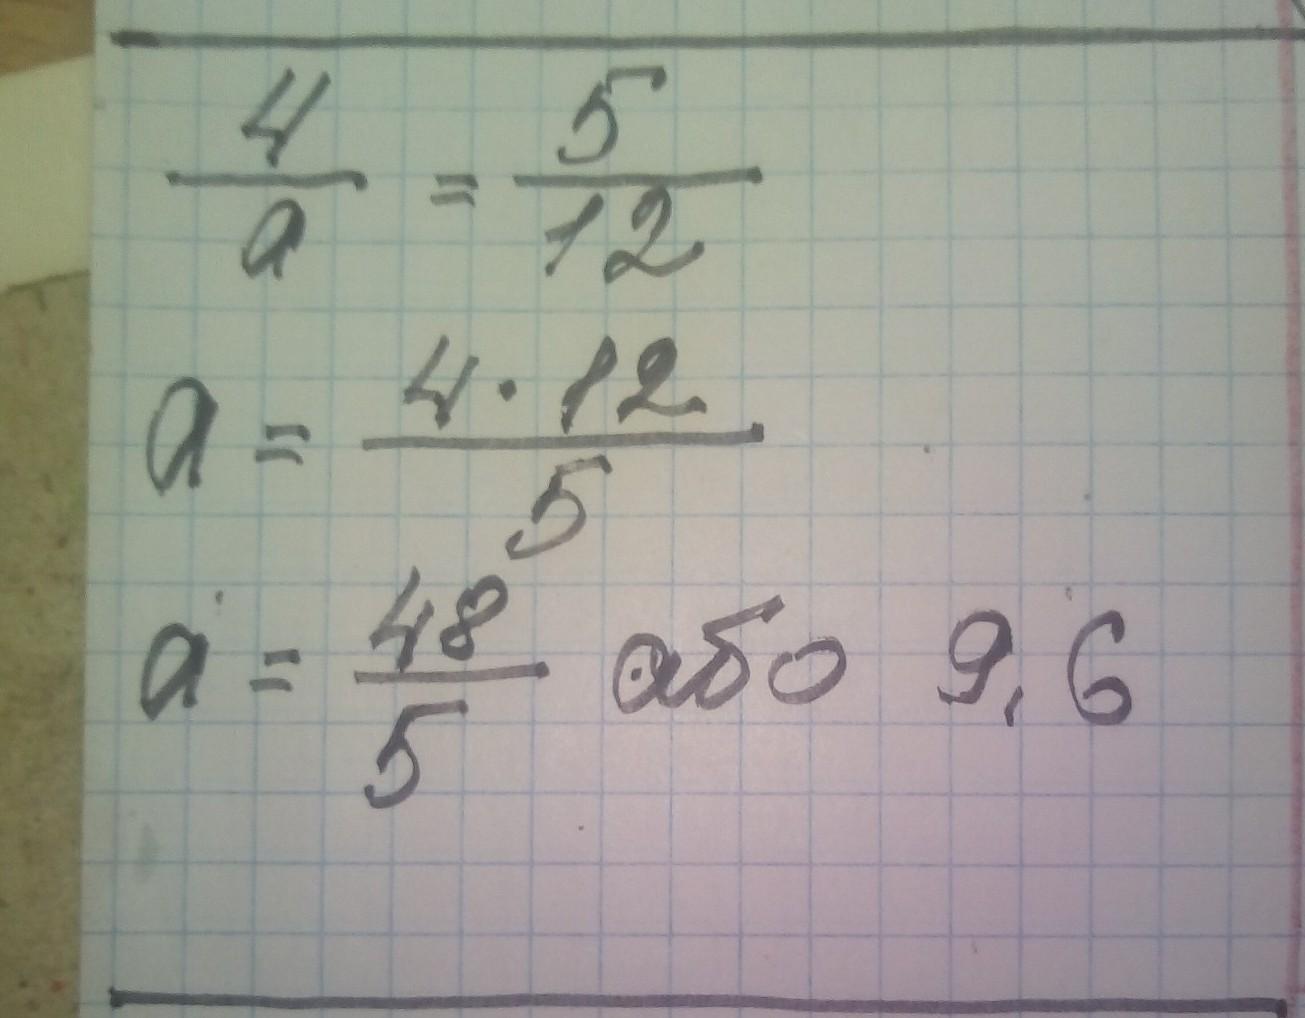 4/a = 5/12
a = 4·12/5
a = 48/5 або 9,6